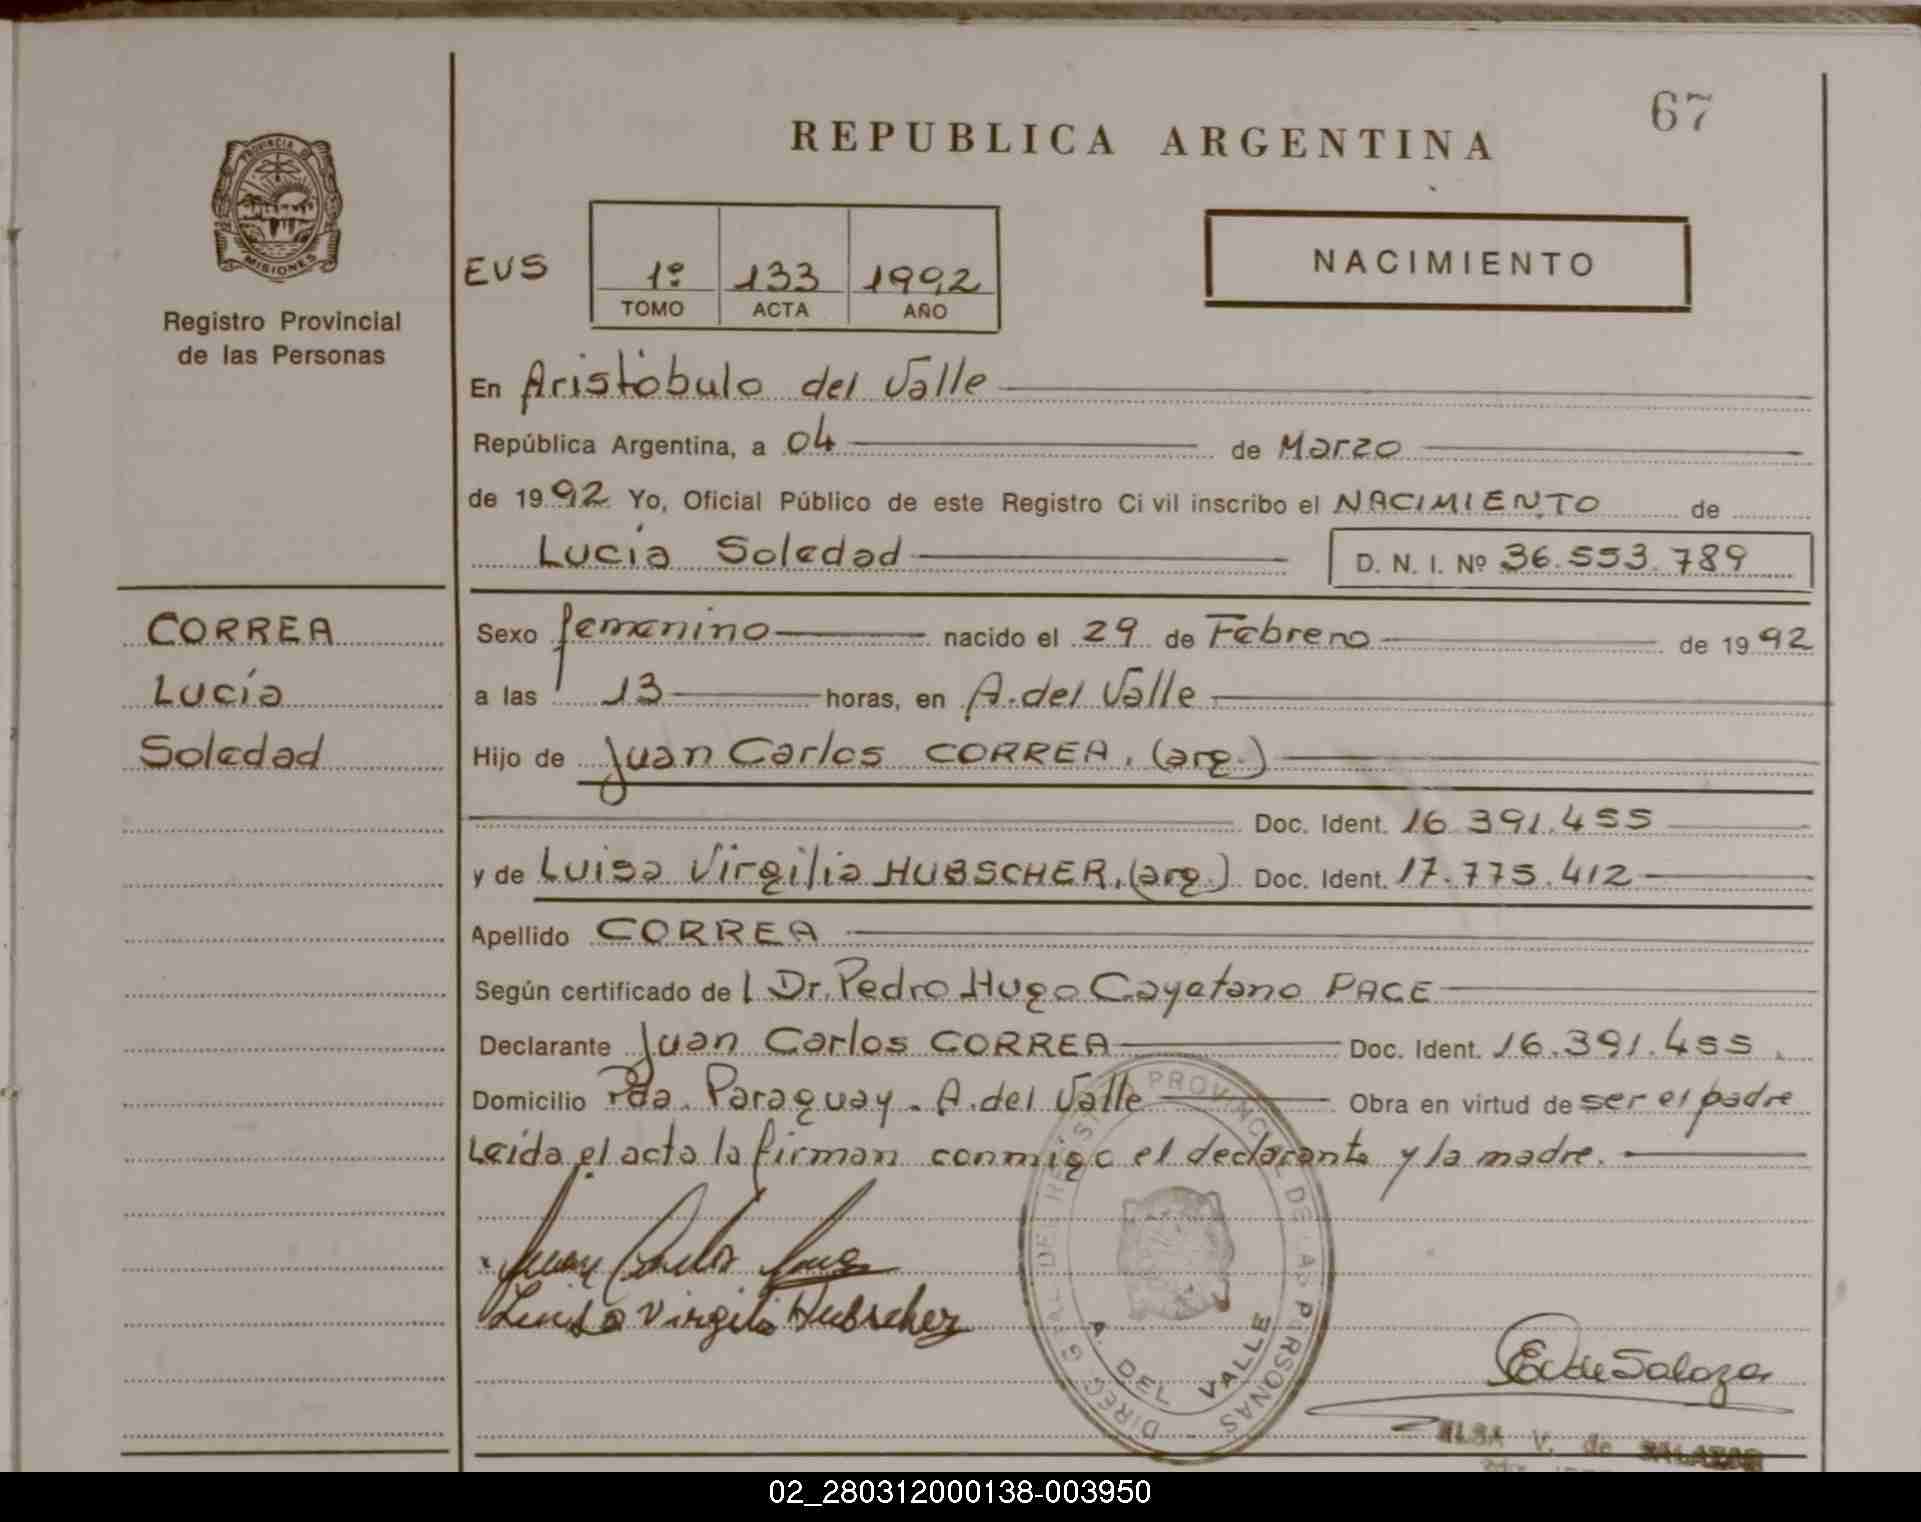 67
REPUBLICA ARGENTINA
PROVINCIA DE
MISIONES
Registro Provincial
de las Personas
EUS
1º 133 1992
TOMO ACTA AÑO
NACIMIENTO
En Aristóbulo del Valle
República Argentina, a 04 de Marzo
de 1992 Yo, Oficial Público de este Registro Ci vil inscribo el NACIMIENTO de
Lucía Soledad D. N. I. Nº 36.553.789
CORREA
Lucía
Soledad
Sexo femenino nacido el 29 de Febrero de 1992
a las 13 horas, en A. del Valle
Hijo de Juan Carlos CORREA, (arg.)
Doc. Ident. 16.391.455
y de Luisa Virgilia HUBSCHER, (arg.) Doc. Ident. 17.775.412
Apellido CORREA
Según certificado del Dr. Pedro Hugo Cayetano PACE
Declarante Juan Carlos CORREA Doc. Ident. 16.391.455.
Domicilio Pda. Paraguay - A. del Valle Obra en virtud de ser el padre
Leída el acta la firman conmigo el declarante y la madre.
Juan Carlos
Luisa Virgilia Hubscher
DIREC GRAL DEL REGISTRO PROVINCIAL DE LAS PERSONAS -
A. DEL VALLE
E de Salazar
ELSA V. de SALAZAR
02_280312000138-003950